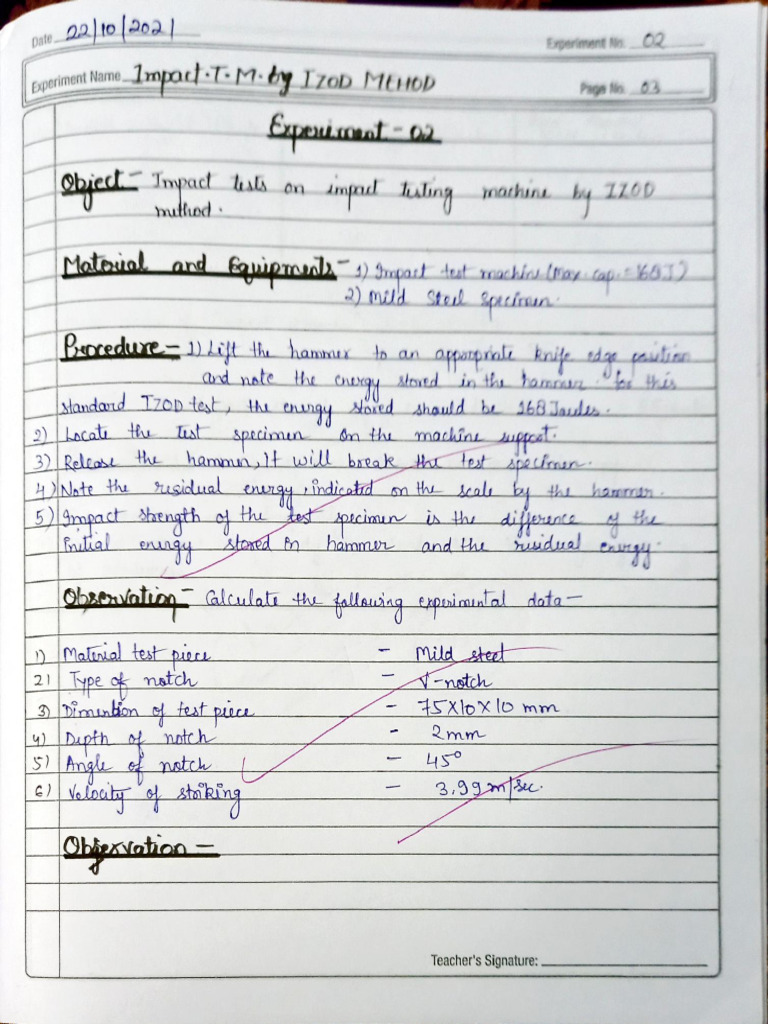 Date 22/10/2021 Experiment No. 02
Experiment Name Impact.T.M. by IZOD MEHOD Page No. 03
Experiment - 02
Object - Impact tests on impact testing machine by IZOD
method.
Material and Equipments - 1) Impact test machine (Max. cap. = 168J)
2) Mild Steel Specimen.
Procedure - 1) Lift the hammer to an apporpriate knife edge position
and note the energy stored in the hammer. for this
standard IZOD test, the energy stored should be 168 Joules.
2) Locate the Test specimen on the machine support.
3) Release the hammer, It will break the test specimen.
4) Note the residual energy, indicated on the scale by the hammer.
5) Impact strength of the test specimen is the difference of the
Initial energy stored in hammer and the residual energy.
Observation - Calculate the following experimental data -
1) Material test piece - Mild steel
2) Type of notch - V-notch
3) Dimention of test piece - 75X10X10 mm
4) Depth of notch - 2mm
5) Angle of notch - 45°
6) Velocity of striking - 3.99 m/sec.
Observation -
Teacher's Signature: